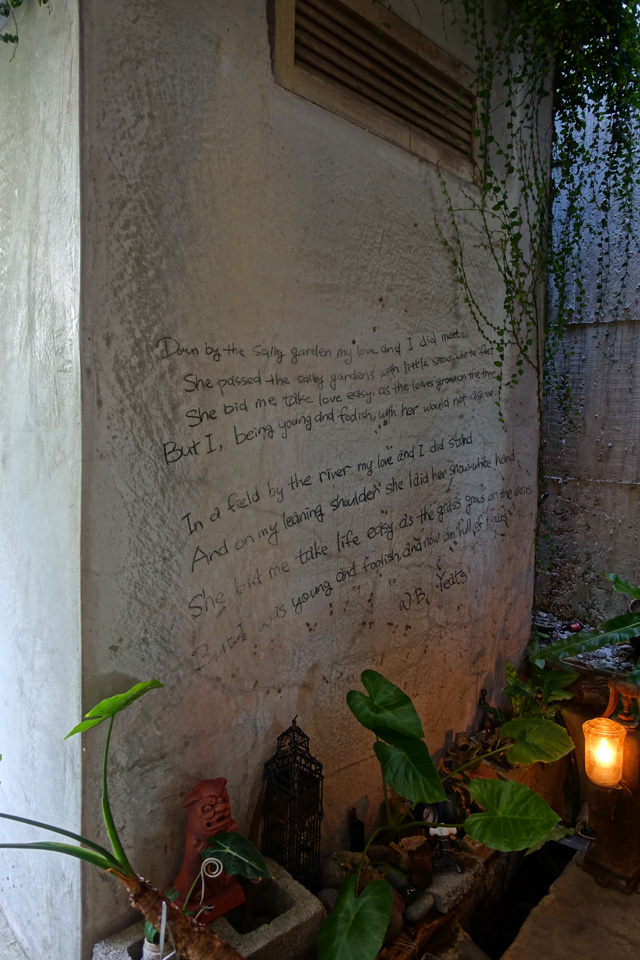 Down by the sally garden my love and I did meet.
She passed the sally gardens with little snow-white feet
She bid me take love easy, as the leaves grow on the tree
But I, being young and foolish, with her would not agree
In a field by the river my love and I did stand
And on my leaning shoulder she laid her snow-white hand
She bid me take life easy as the grass grows on the weirs
But I was young and foolish, and now am full of tears
W.B. Yeats